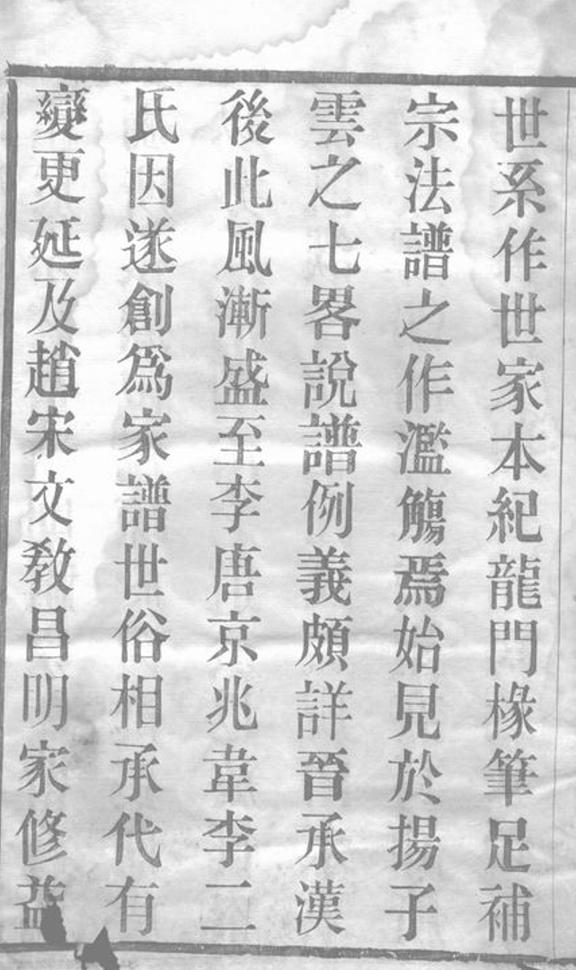 世系作世家本紀龍門椽筆足補
宗法譜之作濫觴焉始見於揚子
雲之七畧說譜例義頗詳晉承漢
後此風漸盛至李唐京兆韋李二
氏因遂創爲家譜世俗相承代有
變更延及趙宋文敎昌明家修益